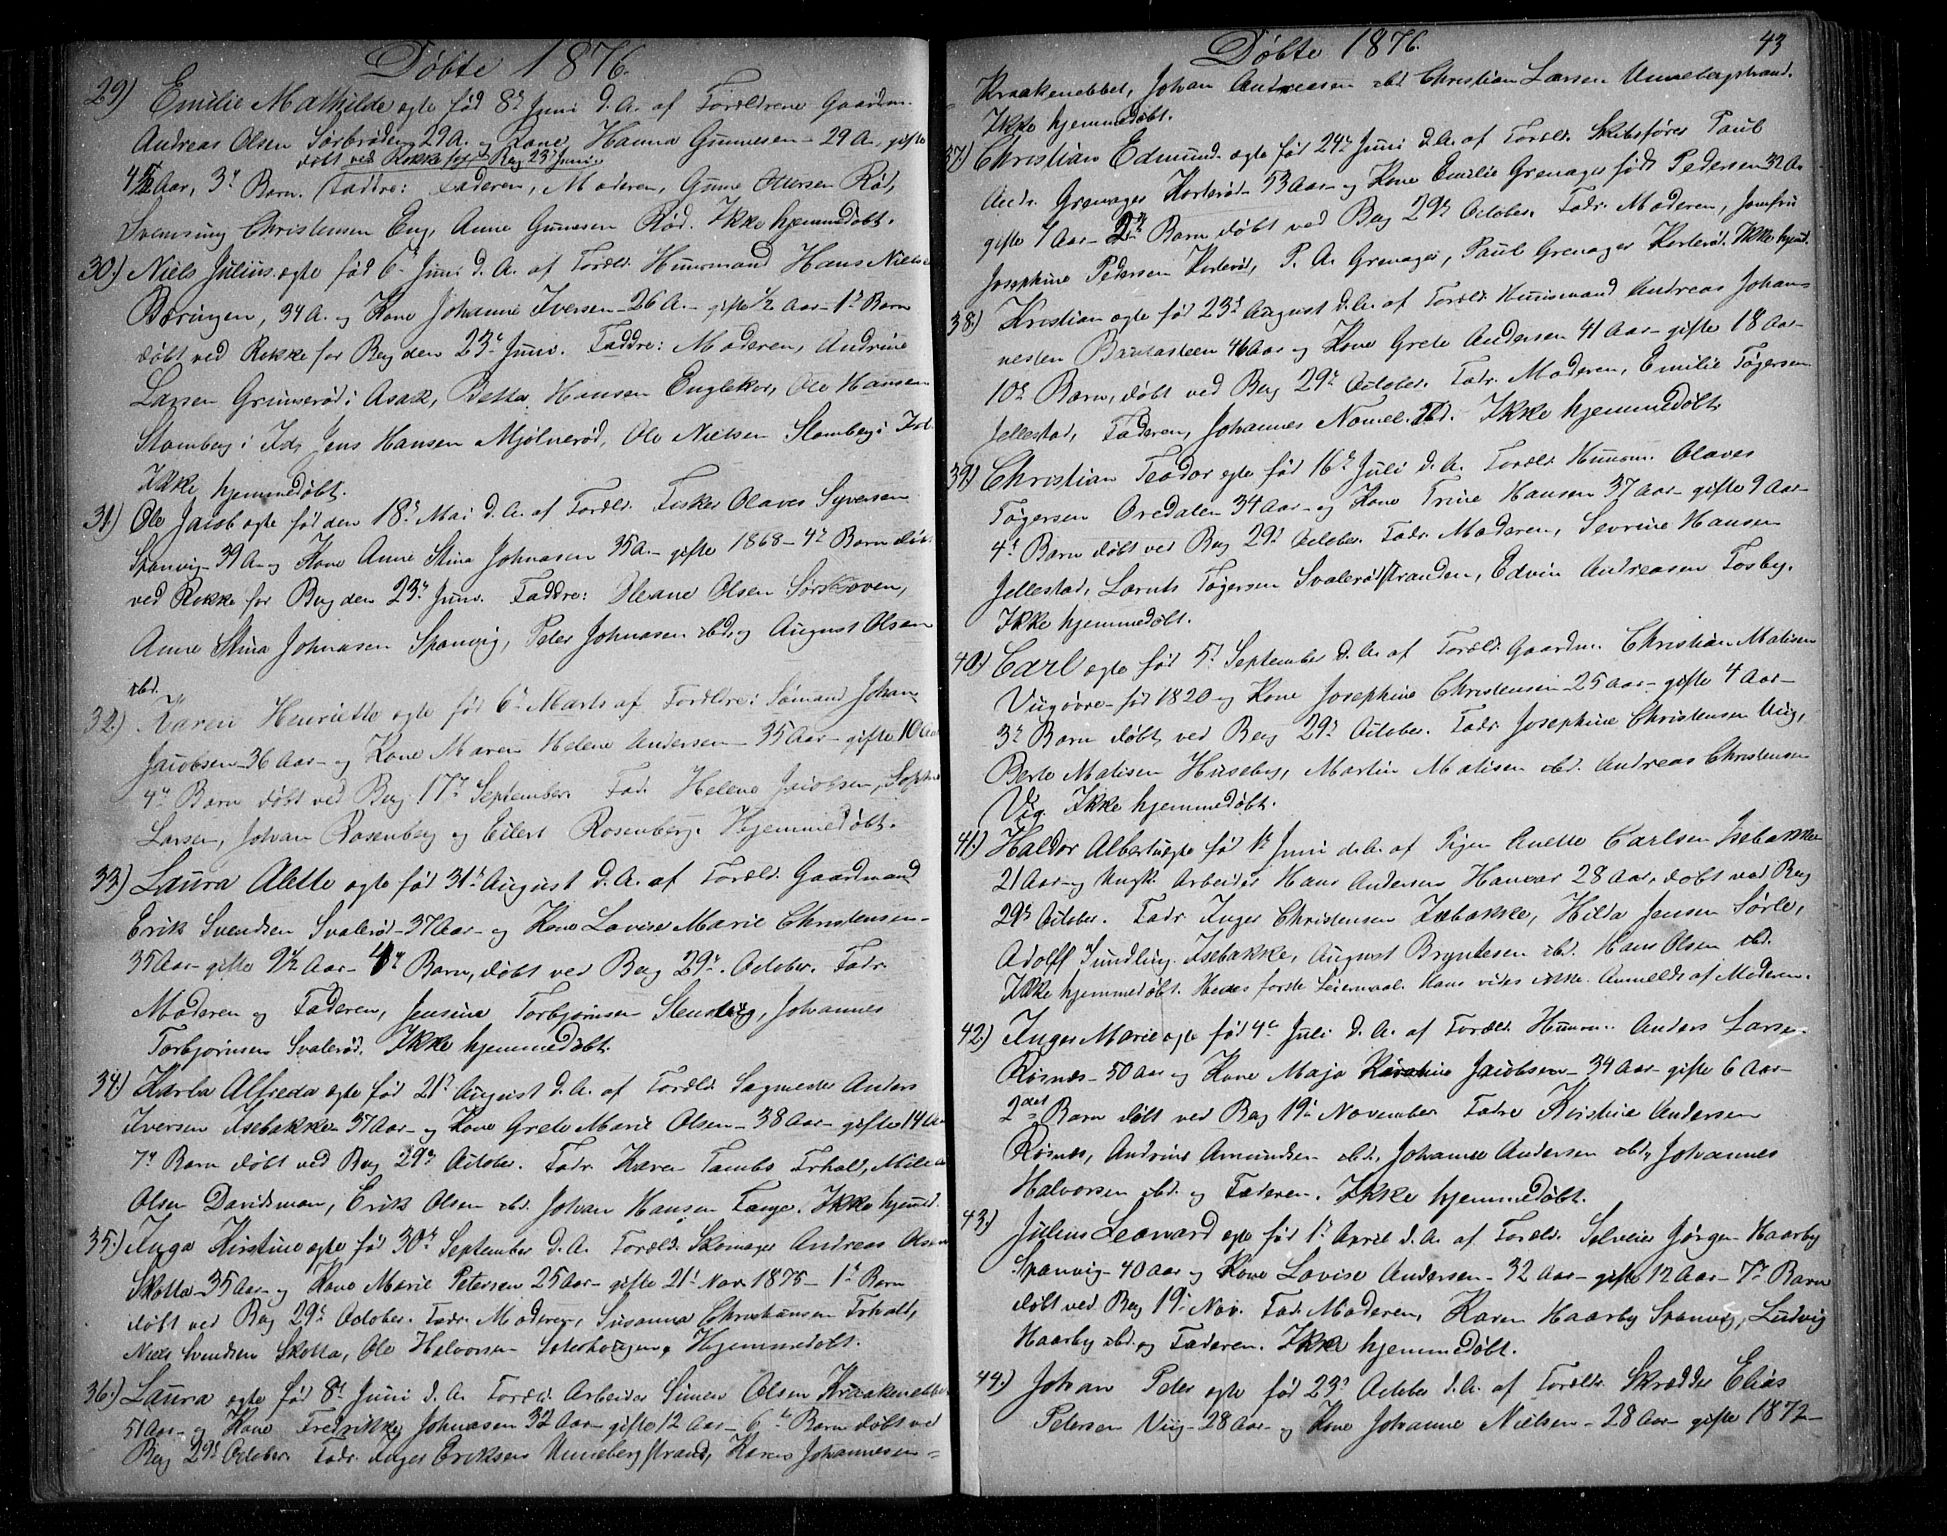 Døbte 1876.
29) Emilie Mathilde ægte fød 8de Juni d. A. af Forældrene Gaardm.
Andreas Olsen Sørbrøden 29 A. og Kone Hanna Gunnesen – 29 A., gifte
døbt ved Rokke for Berg 23de Juni.
4½ Aar, 3de Barn. Faddre: Faderen, Moderen, Gunne Ottersen Rød,
Svensung Christensen Eng, Anne Gunnesen Rød. Ikke hjemmedøbt.
30.) Niels Julius, ægte fød 6te Juni d. A. af Forældr. Huusmand Hans Nielsen
Børingen, 34 A. og Kone Johanne Iversen – 26 A. – gifte ½ Aar – 1ste Barn
døbt ved Rokke for Berg den 23de Juni. Faddre: Moderen, Andrine
Larsen Grimserød i Asak, Betta Hansen Englekor, Ole Hansen
Stomberg i Id, Jens Hansen Mjølnerød, Ole Nielsen Stomberg i Id.
Ikke hjemmedøbt.
31.) Ole Jacob ægte fød den 18de Mai d. A. af Forældr. Fisker Olaves Syversen
Sponvig – 39 A. og Kone Anne Stina Johnasen 35 A. – gifte 1868 – 4de Barn døbt
ved Rokke for Berg den 23de Juni. Faddre: Oleane Olsen Sørskoven,
Anne Stina Johnasen Sponvig, Peter Johnasen ibd. og August Olsen
ibd.
32.) Karen Henriette ægte fød 6te Marts af Forældre: Sømand Johan
Jacobsen – 36 Aar – og Kone Maren Helene Andersen – 35 Aar – gifte 10 Aar
4de Barn døbt ved Berg 17de September. Fad. Helene Jacobsen, Sophie
Larsen, Johan Rosenberg og Eilert Rosenberg. Hjemmedøbt.
33.) Laura Alette ægte fød 31te August d. A. af Forældr. Gaardmand
Erik Svendsen Svalerød – 37 Aar – og Kone Lovise Marie Christensen –
35 Aar – gifte 9½ Aar – 4de Barn, døbt ved Berg 29de October. Fadr.
Moderen og Faderen, Jensine Torbjørnsen Stensvig, Johannes
Torbjørnsen Svalerød. Ikke hjemmedøbt.
34.) Karla Alfreda ægte fød 21de August d. A. af Forældr. Sagmester Anders
Iversen Isebakke – 37 Aar – og Kone Grete Marie Olsen – 38 Aar – gifte 14 Aar
7de Barn døbt ved Berg 29de October. Fadr. Karen Tambs Torhall, Milea
Olsen Davidsman, Erik Olsen ibd. Johan Hansen Tange. Ikke hjemmed.
35.) Inga Kirstine ægte fød 30te September d. A. Forældr. Skomager Andreas Olsen
Skotta – 35 Aar – og Kone Marie Petersen 25 Aar – gifte 21de Nov. 1875 – 1ste Barn
døbt ved Berg 29de October. Fadr. Moderen, Susanna Christiansen Torhall,
Niels Svendsen Skotta, Ole Halvorsen Hjemmedøbt.
36.) Laura ægte fød 8de Juni d. A. Forældr. Arbeider Simen Olsen Kraakenebbet
51 Aar – og Kone Fredrikke Johnasen 32 Aar – gifte 12 Aar – 6te Barn døbt ved
Berg 29de October. Fadr. Inger Eriksen Unnebergstrand, Karen Johannesen =
Døbte 1876.
43
= Kraakenebbet, Johan Andreasen ibd. Christian Larsen Unnebergstrand.
Ikke hjemmedøbt.
37.) Christian Edmund ægte fød 24de Juni d. A. af Forældr. Skibsfører Paul
Andr. Grenager Korterød – 53 Aar – og Kone Emilie Grenager født Pedersen 32 A.
gifte 9 Aar – 2det Barn døbt ved Berg 29de October. Fadr. Moderen, Jomfru
Josephine Pedersen Korterød, P. A. Grenager, Paul Grenager Korterød. Ikke hjemd.
38.) Kristian ægte fød 23de August d. A. af Forældr. Huusmand Andreas Johan-
nesen Brataasteen 46 Aar og Kone Grete Andersen 41 Aar – gifte 18 Aar –
10de Barn, døbt ved Berg 29de October. Fadr. Moderen, Emilie Tøgersen
Jellestad, Faderen, Johannes ibd. Ikke hjemmedøbt.
39.) Christian Teodor ægte fød 16de Juli d. A. Forældr. Huusm. Olaves
Tøgersen Oredalen 34 Aar – og Kone Trine Hansen 37 Aar – gifte 9 Aar –
4de Barn døbt ved Berg 29de October. Fadr. Moderen, Sevrine Hansen
Jellestad, Laruts Tøgersen Svalerødstranden, Edvin Andreasen Fosby.
Ikke hjemmedøbt.
40.) Carl ægte fød 5te September d. A. af Forældr. Gaardm. Christian Matisen
Viigøvre – fød 1820 – og Kone Josephine Christensen – 25 Aar – gifte 4 Aar –
3de Barn døbt ved Berg 29de October. Fadr. Josephine Christensen Viig,
Berte Matisen Huseby, Martin Matisen ibd. Andreas Christensen
Viig. Ikke hjemmedøbt.
41.) Haldor Albert uægte fød 1ste Juni d. A. af Pigen Anette Carlsen Isebakke
21 Aar – og Ungk. Arbeider Hans Andersen Hanvar 28 Aar, døbt ved Berg
29de October. Fadr. Inger Christensen Isebakke, Hilda Jensen Sørle,
Adolf Sundling Isebakke, August Bryntesen ibd. Hans Olsen ibd.
Ikke hjemmedøbt. Hendes første Leiermaal. Hans vides ikke. Anmeldt af Moderen.
42.) Inger Marie ægte fød 4de Juli d. A. af Forældr. Huusm. Anders Larsen
Røsnæs – 50 Aar og Kone Maja Karoline Jacobsen – 34 Aar – gifte 6 Aar –
2det Barn døbt ved Berg 19de November. Fadre Kristine Andersen
Røsnæs, Andrine Amundsen ibd., Johanne Andersen ibd., Johannes
Halvorsen ibd. og Faderen. Ikke hjemmedøbt.
43.) Julius Leonard ægte fød 1ste April d. A. af Forældr. Selveier Jørgen Haarby
Sponvig – 40 Aar og Kone Lovise Andersen – 32 Aar – gifte 12 Aar – 7de Barn
døbt ved Berg 19de Nov. Fadr. Moderen, Karen Haarby Sponvig, Ludvig
Haarby ibd. og Faderen. Ikke hjemmedøbt.
44.) Johan Peter ægte fød 23de October d. A. af Forældr. Skrædder Elias
Petersen Viig – 28 Aar – og Kone Johanne Nielsen – 28 Aar – gifte 1872 –